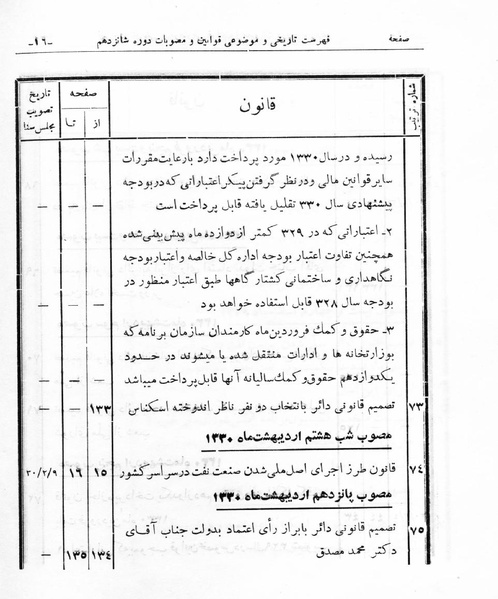 صفحة فهرست تاریخی و موضوعی قوانین و مصوبات دوره شانزدهم -۱۶-
شماره ترتیب قانون صفحه تاریخ تصویب مجلس سنا
از تا
رسیده و در سال ۱۳۳۰ مورد پرداخت دارد بارعایت مقررات
سایر قوانین مالی و در نظر گرفتن پیکر اعتباراتی که در بودجه
پیشنهادی سال ۳۳۰ تقلیل یافته قابل پرداخت است — — —
۲ـ اعتباراتی که در ۳۲۹ کمتر از دوازده ماه پیش بینی شده
همچنین تفاوت اعتبار بودجه اداره کل خالصه و اعتبار بودجه
نگاهداری و ساختمانی کشتارگاهها طبق اعتبار منظور در
بودجه سال ۳۲۸ قابل استفاده خواهد بود — — —
۳ـ حقوق و کمك فروردین ماه کارمندان سازمان برنامه که
بوزارتخانه ها و ادارات منتقل شده یا میشوند در حدود
یکدوازدهم حقوق و کمك سالیانه آنها قابل پرداخت میباشد — — —
۷۳ تصمیم قانونی دائر بانتخاب دو نفر ناظر اندوخته اسکناس ۱۳۳ — —
مصوب شب هشتم اردیبهشت ماه ۱۳۳۰
۷۴ قانون طرز اجرای اصل ملی شدن صنعت نفت در سراسر کشور ۱۵ ۱۶ ۳۰/۲/۹
مصوب پانزدهم اردیبهشت ماه ۱۳۳۰
۷۵ تصمیم قانونی دائر بابراز رأی اعتماد بدولت جناب آقای
دکتر محمد مصدق ۱۳۴ ۱۳۵ —